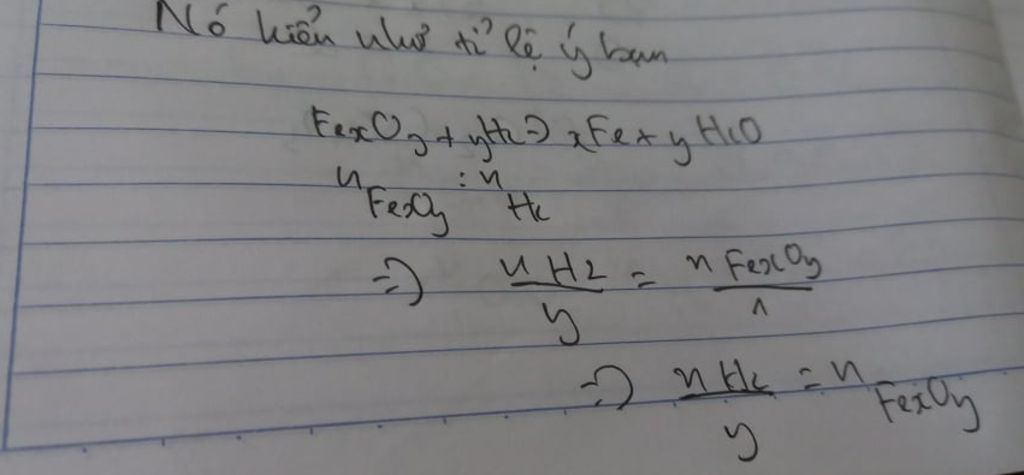 Nó kiểu như tỉ lệ ý bạn
FexOy + yH2 => xFe + yH2O
n FexOy : n H2
=> n H2 / y = n FexOy / 1
=> n H2 / y = n FexOy